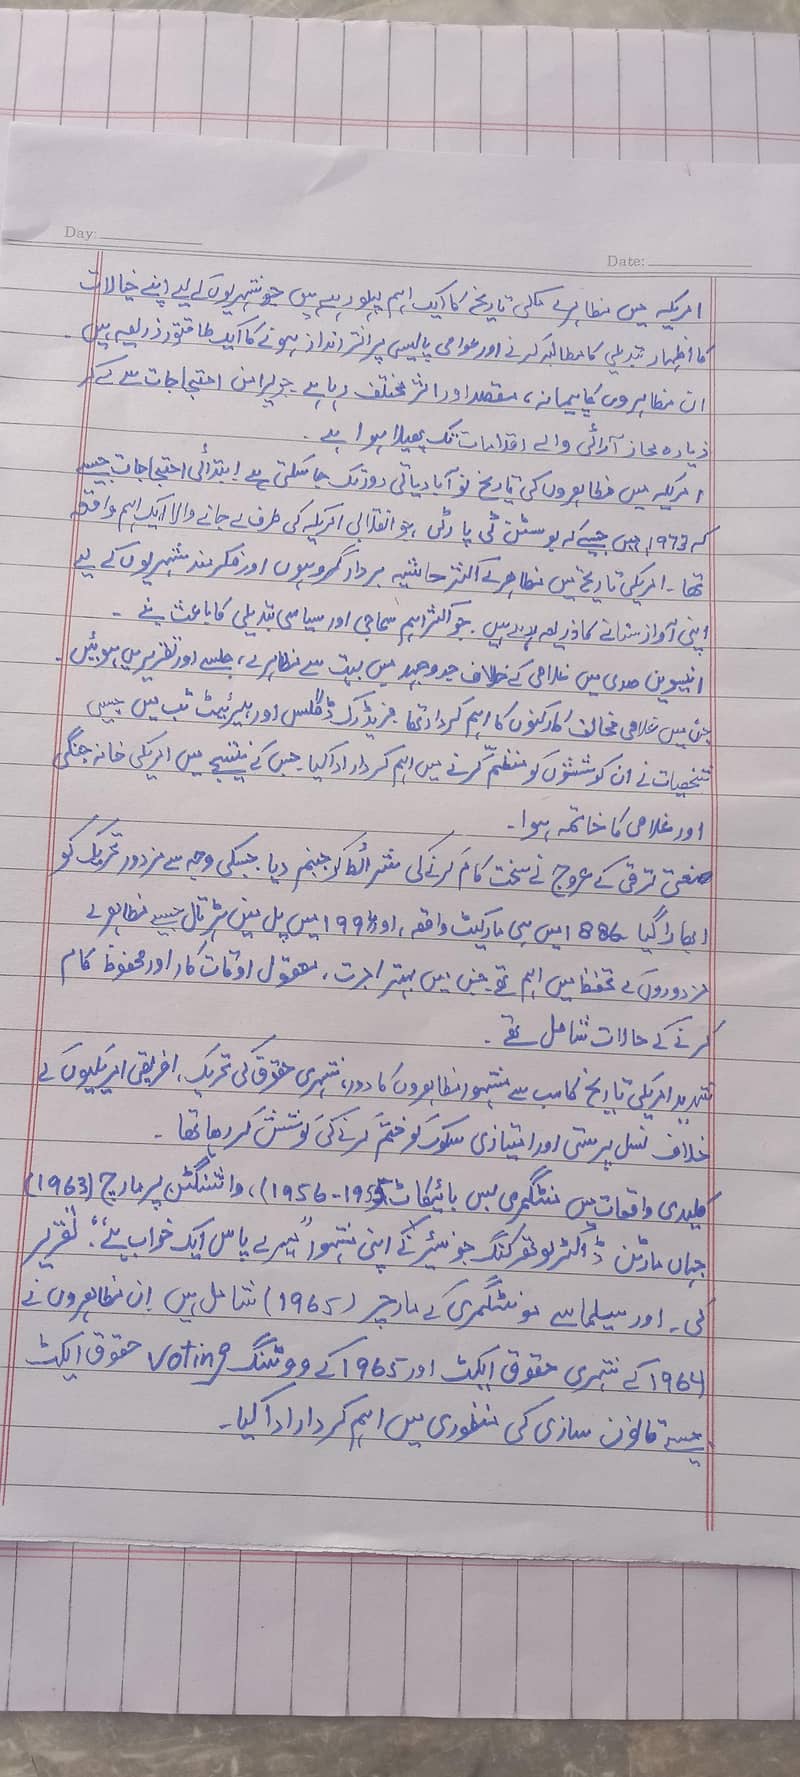 Day:
Date:
امریکہ میں مظاہرے ملکی تاریخ کا ایک اہم پہلو رہے ہیں جو شہریوں کے لیے اپنے خیالات
کا اظہار تبدیلی کا مطالبہ کرنے اور عوامی پالیسی پر اثر انداز ہونے کا ایک طاقتور ذریعہ ہیں۔
ان مظاہروں کا پیمانہ، مقصد اور اثر مختلف رہا ہے۔ جو پرامن احتجاجات سے لے کر
زیادہ محاذ آرائی والے اقدامات تک پھیلا ہوا ہے۔
امریکہ میں مظاہروں کی تاریخ نو آبادیاتی دور تک جا سکتی ہے ابتدائی احتجاجات جیسے
کہ 1973 میں جیسے کہ بوسٹن ٹی پارٹی، جو انقلابی امریکہ کی طرف لے جانے والا ایک اہم واقعہ
تھا۔ امریکی تاریخ میں مظاہرے اکثر حاشیہ بردار گروہوں اور فکر مند شہریوں کے لیے
اپنی آواز سنانے کا ذریعہ رہے ہیں۔ جو اکثر اہم سماجی اور سیاسی تبدیلی کا باعث بنے۔
انیسویں صدی میں غلامی کے خلاف جدوجہد میں بہت سے مظاہرے، جلسے اور تقریریں ہوئیں۔
جن میں غلامی مخالف کارکنوں کا اہم کردار تھا فریڈرک ڈگلس اور ہیریٹ ٹب میں جیسی
شخصیات نے ان کوششوں کو منظم کرنے میں اہم کردار ادا کیا۔ جس کے نتیجے میں امریکی خانہ جنگی
اور غلامی کا خاتمہ ہوا۔
صنعتی ترقی کے عروج نے سخت کام کرنے کی شرائط کو جنم دیا۔ جسکی وجہ سے مزدور تحریک کو
ابھارا گیا 1886 میں ہی مارکیٹ واقعہ، اور 1994 میں پل مین ہڑتال جیسے مظاہرے
مزدوروں کے تحفظ میں اہم تھے جن میں بہتر اجرت، معقول اوقات کار اور محفوظ کام
کرنے کے حالات شامل تھے۔
شدید امریکی تاریخ کا سب سے مشہور مظاہروں کا دور، شہری حقوق کی تحریک، افریقی امریکیوں کے
خلاف نسل پرستی اور امتیازی سلوک کو ختم کرنے کی کوشش کر رہا تھا۔
کلیدی واقعات میں منٹگمری بس بائیکاٹ (1955-1956)، واشنگٹن پر مارچ (1963)
جہاں مارٹن ڈاکٹر لوتھر کنگ جونیئر نے اپنی مشہور "میرے پاس ایک خواب ہے"، تقریر
کی۔ اور سیلما سے مونٹگمری کے مارچر (1965) شامل ہیں ان مظاہروں نے
1964 کے شہری حقوق ایکٹ اور 1965 کے ووٹنگ Voting حقوق ایکٹ
جیسے قانون سازی کی منظوری میں اہم کردار ادا کیا۔